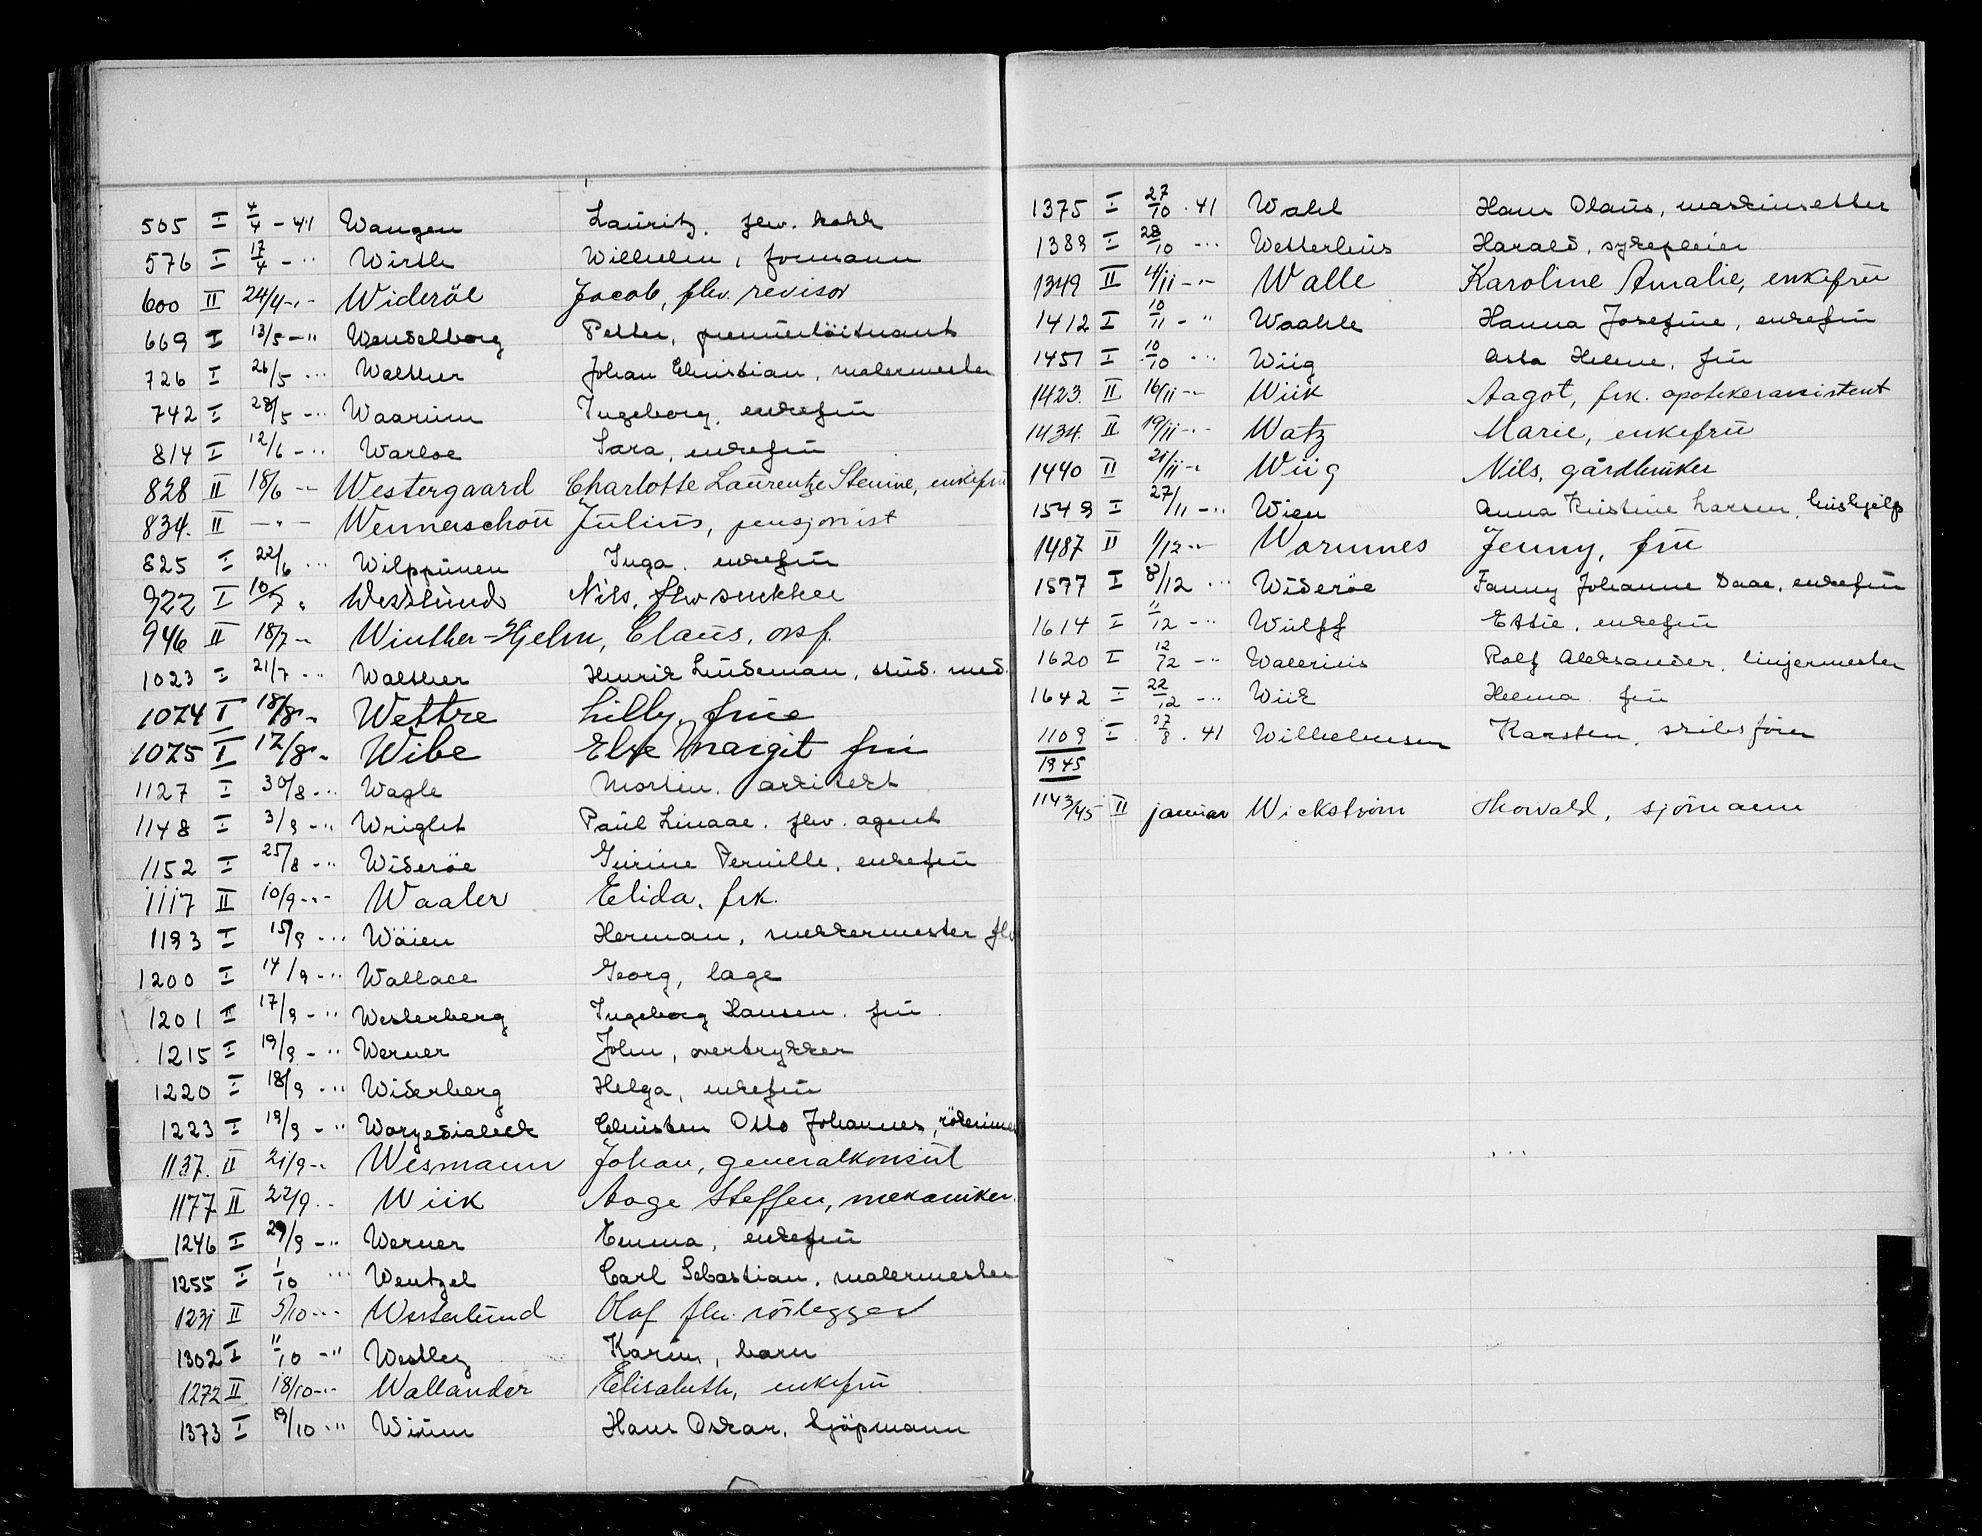 505 I 4/4 - 41 Wangen Lauritz, flw. kokk
576 I 17/4 - " Wirth Wilhelm, formann
600 II 24/4 - " Wideröe Jacob, flw. revisor
669 I 13/5 - " Wendelborg Petter, premierlöitnant
726 I 26/5 " Walther Johan Christian, malermester
742 I 28/5 - " Waarum Ingeborg, enkefru
814 I 12/6 - " Warloe Sara, enkefru
828 II 18/6 - " Westergaard Charlotte Laurentze Stenine, enkefru
834. II - " - Wennerschou Julius, pensjonist
825 I 22/6 " Wilppunen Inga, enkefru
922 I 10/7 " Westlund Nils, flw snekker
946 II 18/7 - " Winther-Hjelm, Claus, orsf.
1023 I 21/7 " Walther Henrik Lindeman, stud. med.
1074 I 18/8 " Wettre Lilly, frue
1075 I 17/8 " Wibe Else Margit fru
1127 I 30/8 - " Wagle Morten, arkitekt
1148 I 3/9 - " Wright Paul Linaae, flw. agent
1152 I 25/8 - " Wideröe Gurine Pernille, enkefru
1117 II 10/9 - " Waaler Elida, frk.
1193 I 15/9 - " Wöien Herman, mekkermester flw
1200 I 14/9 - " Wallace Georg, lage
1201 II 17/9 - " Westerberg Ingeborg Hansen, fru.
1215 I 19/9 - " Werner John, overtrykker
1220 I 18/9 - " Widerberg Helga, enkefru
1223 I 19/9 - " Christen Otto Johannes,
1137. II 21/9 - " Wesmann Johan, generalkonsul
1177 II 22/9 " Wiik Aage Steffen, mekaniker.
1246 I 29/9 - " Werner Emma, enkefru
1255 I 1/10 " Wentzel Carl Sebastian, malermester
1231 II 5/10 - " Westerlund Olaf flw. rörlegger
1302 I 11/10 - " Westley Karin, barn
1272 II 18/10 - " Wallander Elisabeth, enkefru
1373 I 19/10 " Wium Hans Oskar, kjöpmann
1375 I 27/10 . 41 Wahl Hans Olaus, maskinsetter
1389 I 28/10 - " Wetterhus Harald, sykepleier
1349 II 4/11 - " Walle Karoline Amalie, enkefru
1412 I 10/11 - " Waahle Hanna Josefine, enkefru
1451 I 10/10 " Wiig Asta Helene, fru
1423. II 16/11 - " Wiik Aagot, frk. apotekerassistent
1434. II 19/11 - " Watz Marie, enkefru
1440 II 21/11 - " Wiig Nils, gårdbruker
1549 I 27/11 - " Wien Anna Kristine Larsen, hushjelp
1487 II 1/12 - " Warumnes Jenny, fru
1577 I 8/12 " Wideröe Fanny Johanne Daae, enkefru
1614 I 11/12 - " Wulff Ettie, enkefru
1620 I 12/12 - " Walerius Rolf Aleksander, linjermester
1642 I 22/12 - " Wiik Helma fru
1109 I 27/8 . 41 Wilhelmsen Karsten, skibsförer
1945
1143/45 II januar Wickström Thorvald, sjömann